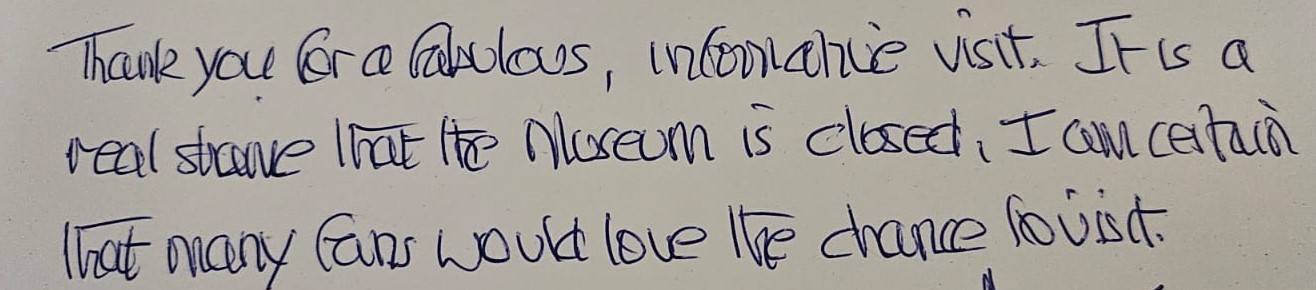 Thank you for a fabulous, informative visit. It is a
real shame that the Museum is closed, I am certain
that many fans would love the chance to visit.